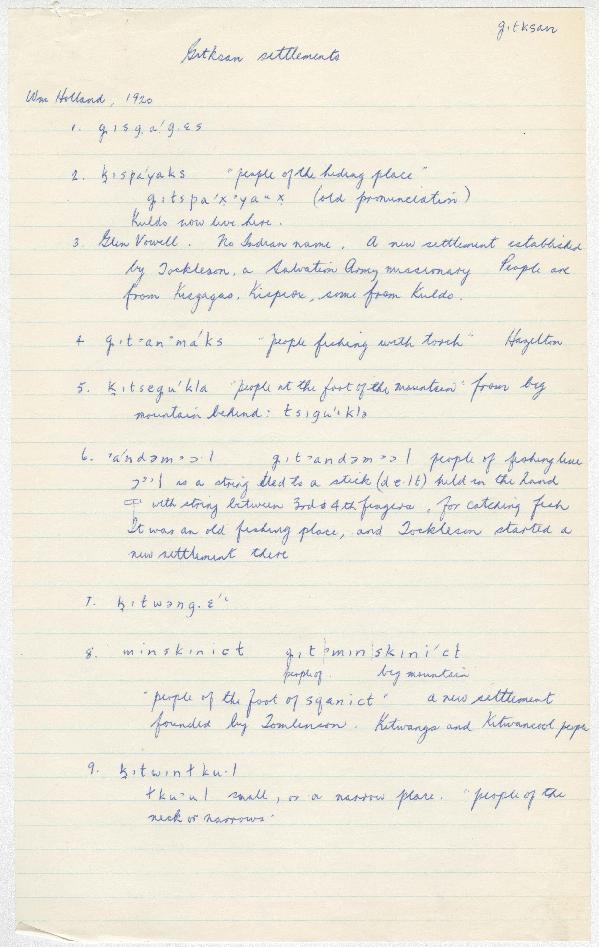 gitksan
Gitksan settlements
Wm Holland, 1920
1. g̣ısg̣a'g̣ɛs
2. ḳıspa'yaks "people of the hiding place"
g̣ıtspa'x·ya·x (old pronunciation)
Kuldo now live here.
3. Glen Vowell. No Indian name. A new settlement established
by Tockleson, a Salvation Army missionary People are
from Kisgagas, Kispiox, some from Kuldo.
4 g̣ıt·an·ma'ks "people fishing with torch" Hazelton
5. ḳıtsegu'kla "people at the foot of the mountain" from big
mountain behind: tsıgu'kla
6. 'a'ndəm·ɔ·l g̣ıt·andəm·ɔ·l people of fishing line
ɔ··l is a string tied to a stick (dɛ·lt) held in the hand
with string between 3rd & 4th fingers, for catching fish
It was an old fishing place, and Tockleson started a
new settlement there
7. ḳıtwəng.ɛ'·
8. minskınıct g̣ıt|·mın|skını'ct
people of big mountain
"people of the foot of sganict" a new settlement
founded by Tomlinson. Kitwanga and Kitwancool people
9. ḳıtwınłku·l
łku·ul small, or a narrow place. "people of the
neck or narrows·